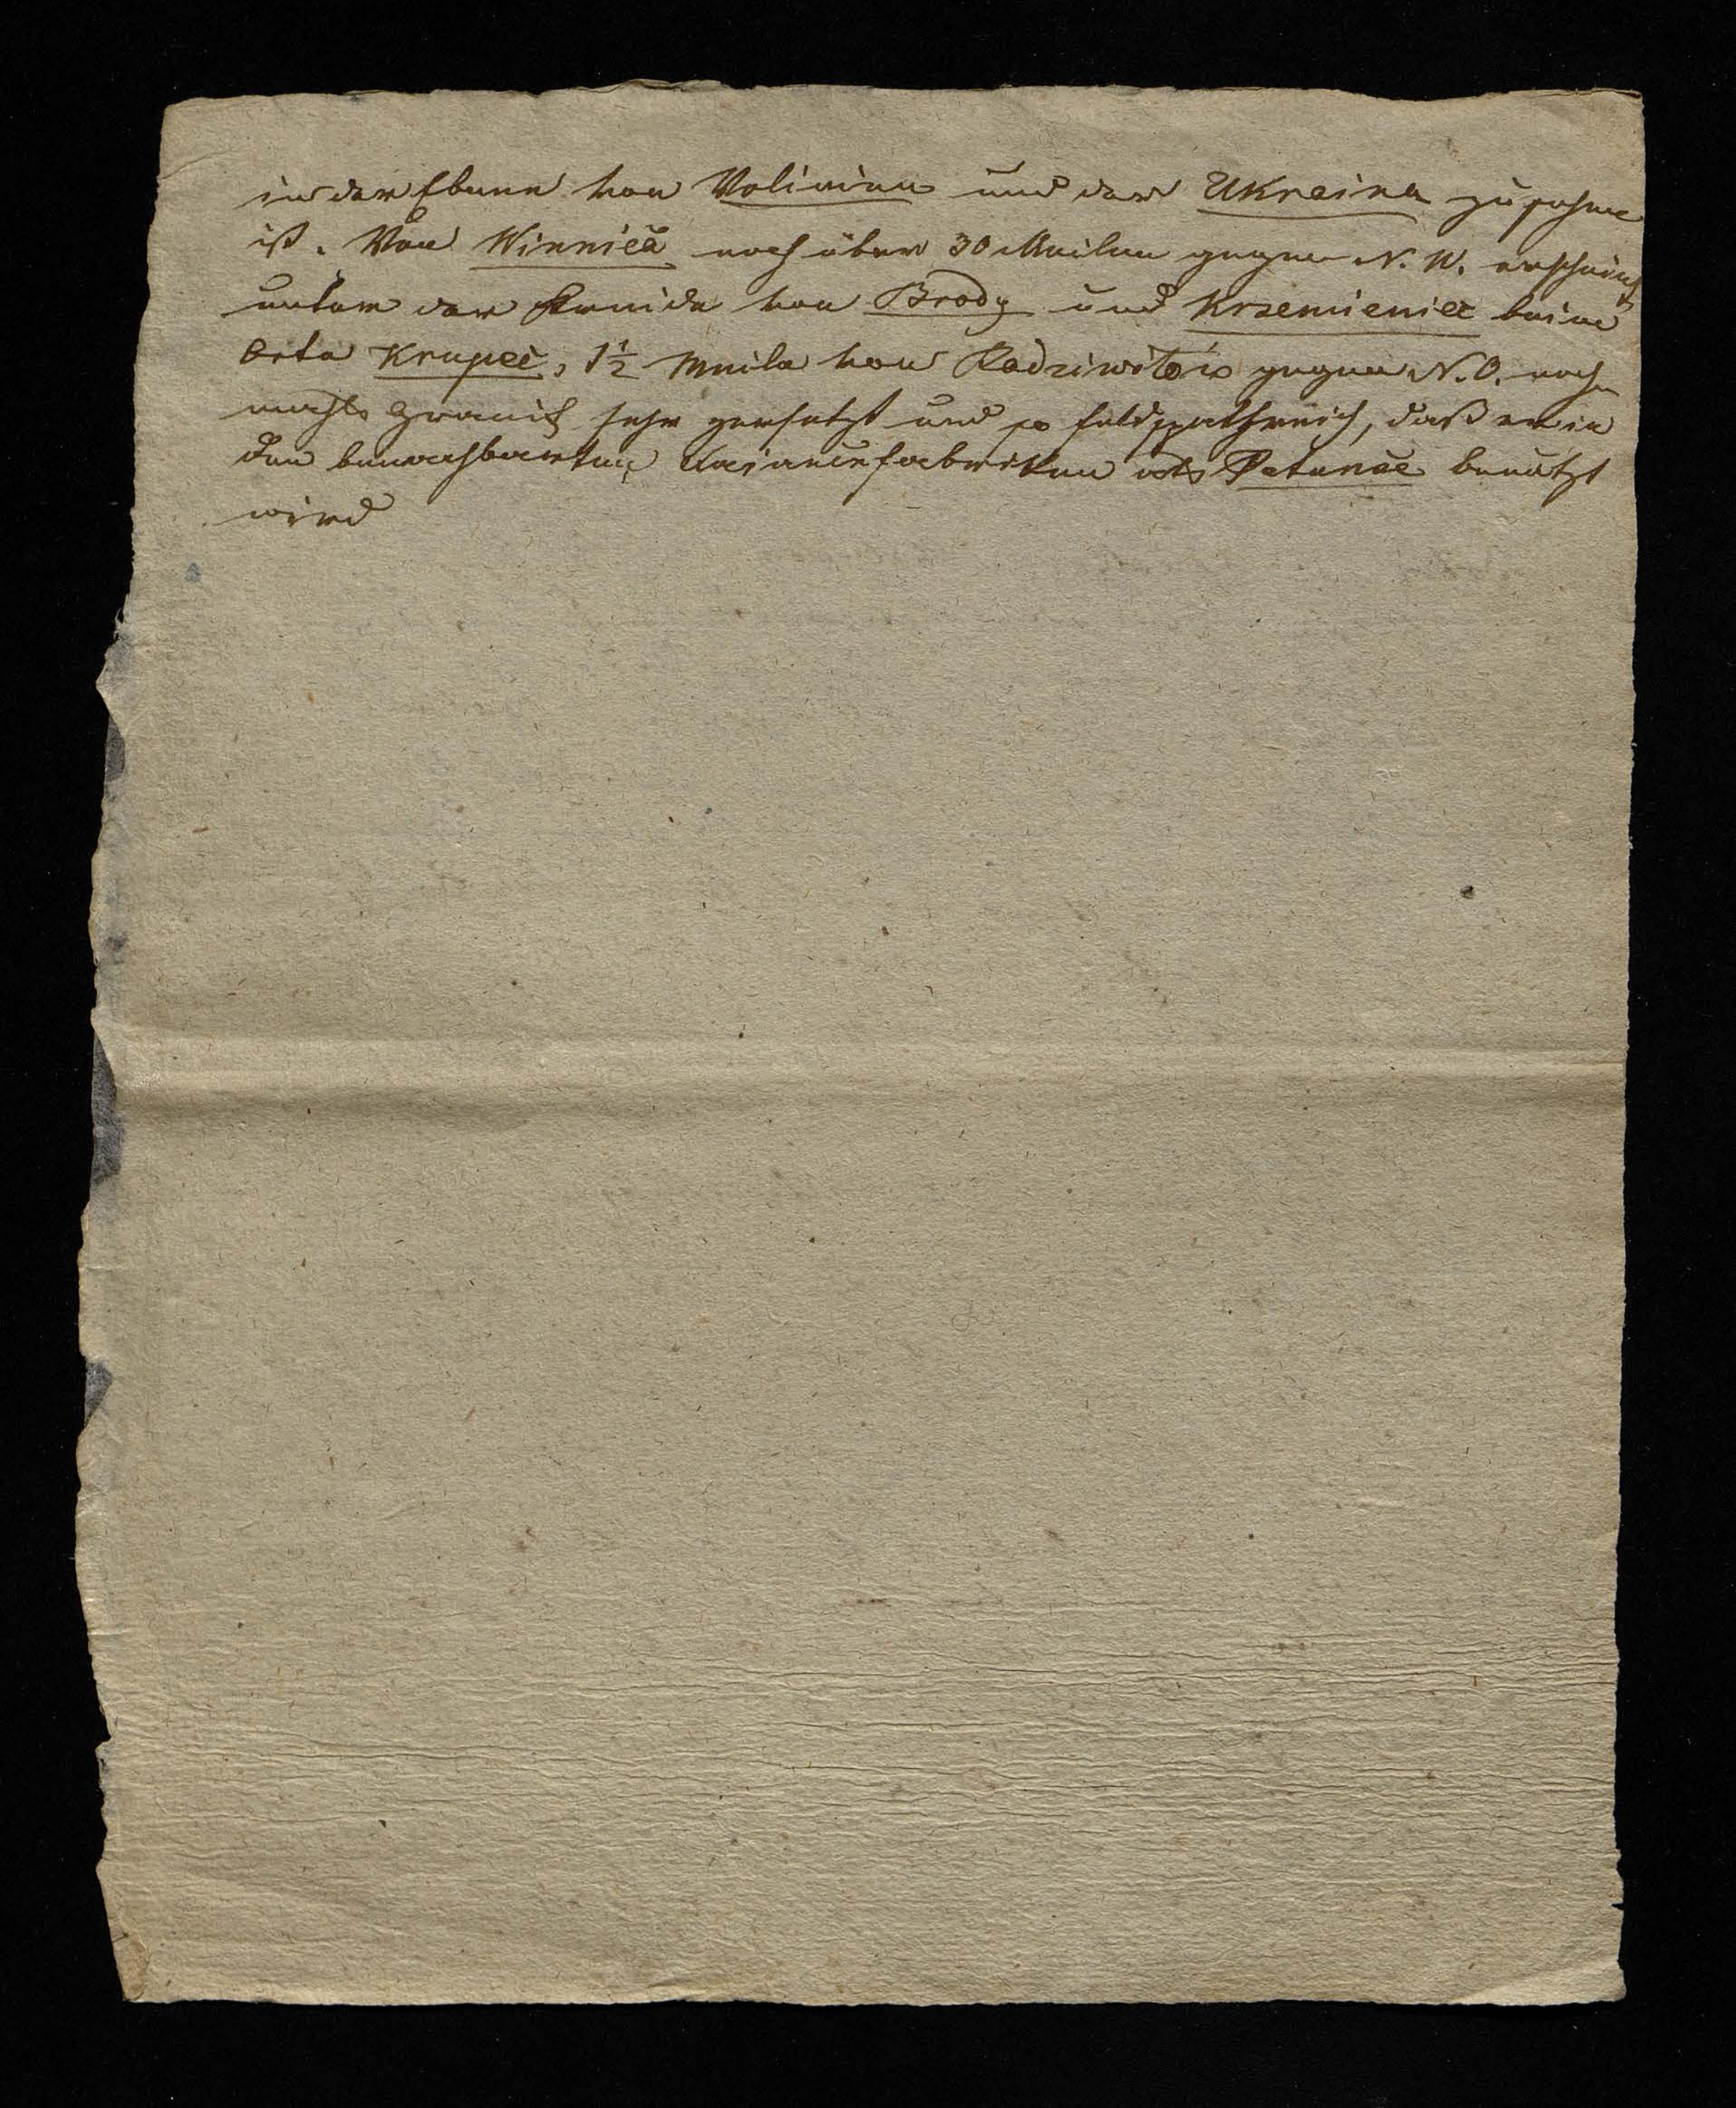 in der Ebene von Volinien und der Ukraina zu sehen
ist. Von Winnica noch über 30 Meilen gegen N. W. erscheint
unter der Kreide von Brody und Krzemieniec beim
Orte Krupec, 1½ Meile von Radziwiłow gegen N. O. noch
mahls Granit sehr zersetzt und so feldspathreich, daß er in
den benachbarten Faiancefabriken als Petunse benützt
wird